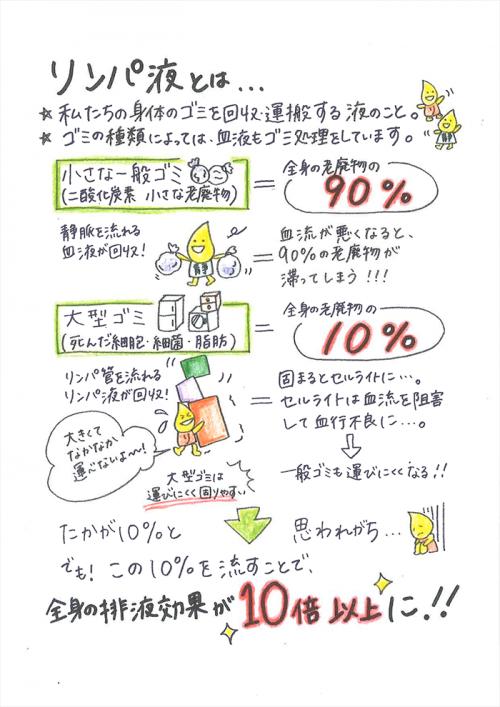 リンパ液とは...
★ 私たちの身体のゴミを回収・運搬する液のこと。
★ ゴミの種類によっては、血液もゴミ処理をしています。
小さな一般ゴミ
(二酸化炭素 小さな老廃物)
=
全身の老廃物の
90%
静脈を流れる
血液が回収!
静
=
血流が悪くなると、
90%の老廃物が
滞ってしまう!!!
大型ゴミ
(死んだ細胞・細菌・脂肪)
=
全身の老廃物の
10%
リンパ管を流れる
リンパ液が回収!
大きくて
なかなか
運べないよ〜〜!
大型ゴミは
運びにくく固りやすい
=
固まるとセルライトに…。
セルライトは血流を阻害
して血行不良に…。
一般ゴミも運びにくくなる!!
たかが10%と
思われがち...
でも!この10%を流すことで、
全身の排液効果が10倍以上に!!